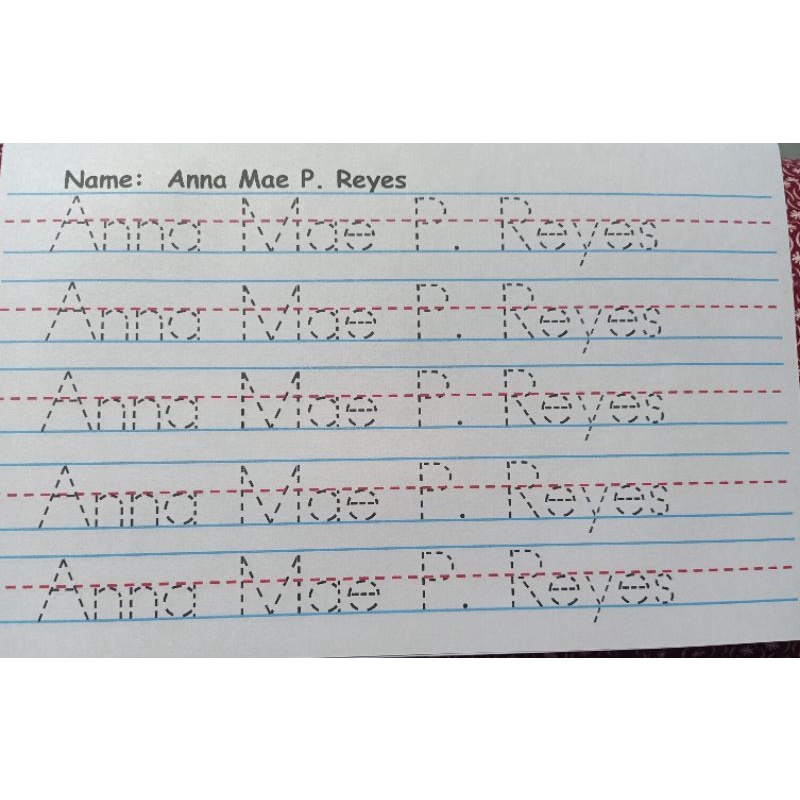 Name: Anna Mae P. Reyes
Anna Mae P. Reyes
Anna Mae P. Reyes
Anna Mae P. Reyes
Anna Mae P. Reyes
Anna Mae P. Reyes